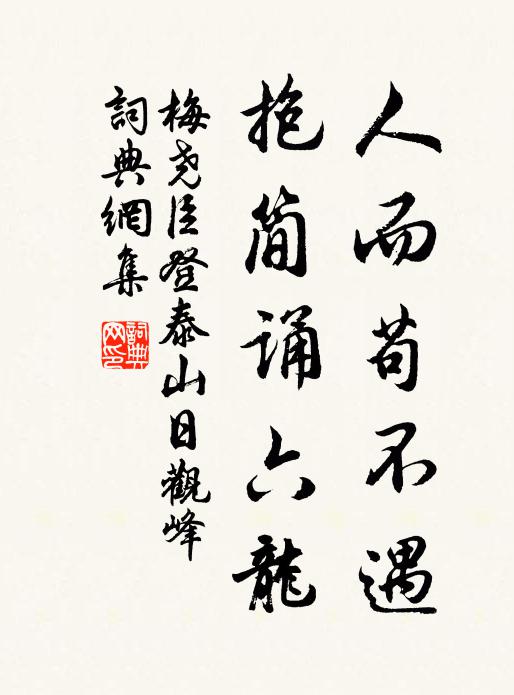 人而苟不遇
抱简诵六龍
梅尧臣登泰山日觀峰
詞典網集
詞典网印